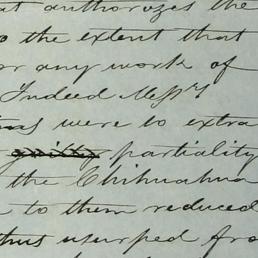 at authorizes the
o the extent that
or any work of
Indeed Messrs
were to extra
guilty partiality
the Chihuahua
to them reduced
thus usurped fro